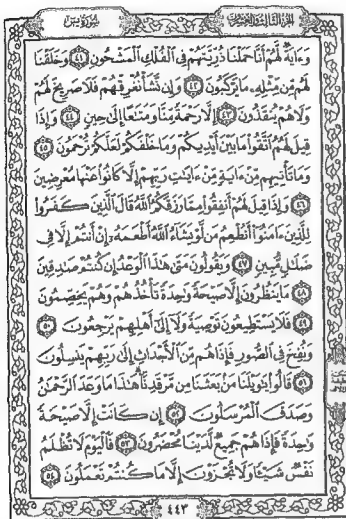 الجزء الثالث والعشرون
سورة يس
وَءَايَةٌ لَّهُمْ أَنَّا حَمَلْنَا ذُرِّيَّتَهُمْ فِى ٱلْفُلْكِ ٱلْمَشْحُونِ ٤١ وَخَلَقْنَا
لَهُم مِّن مِّثْلِهِۦ مَا يَرْكَبُونَ ٤٢ وَإِن نَّشَأْ نُغْرِقْهُمْ فَلَا صَرِيخَ لَهُمْ
وَلَا هُمْ يُنقَذُونَ ٤٣ إِلَّا رَحْمَةً مِّنَّا وَمَتَٰعًا إِلَىٰ حِينٍ ٤٤ وَإِذَا
قِيلَ لَهُمُ ٱتَّقُوا۟ مَا بَيْنَ أَيْدِيكُمْ وَمَا خَلْفَكُمْ لَعَلَّكُمْ تُرْحَمُونَ ٤٥
وَمَا تَأْتِيهِم مِّنْ ءَايَةٍ مِّنْ ءَايَٰتِ رَبِّهِمْ إِلَّا كَانُوا۟ عَنْهَا مُعْرِضِينَ
٤٦ وَإِذَا قِيلَ لَهُمْ أَنفِقُوا۟ مِمَّا رَزَقَكُمُ ٱللَّهُ قَالَ ٱلَّذِينَ كَفَرُوا۟
لِلَّذِينَ ءَامَنُوٓا۟ أَنُطْعِمُ مَن لَّوْ يَشَآءُ ٱللَّهُ أَطْعَمَهُۥٓ إِنْ أَنتُمْ إِلَّا فِى
ضَلَٰلٍ مُّبِينٍ ٤٧ وَيَقُولُونَ مَتَىٰ هَٰذَا ٱلْوَعْدُ إِن كُنتُمْ صَٰدِقِينَ
٤٨ مَا يَنظُرُونَ إِلَّا صَيْحَةً وَٰحِدَةً تَأْخُذُهُمْ وَهُمْ يَخِصِّمُونَ
٤٩ فَلَا يَسْتَطِيعُونَ تَوْصِيَةً وَلَآ إِلَىٰٓ أَهْلِهِمْ يَرْجِعُونَ ٥٠
وَنُفِخَ فِى ٱلصُّورِ فَإِذَا هُم مِّنَ ٱلْأَجْدَاثِ إِلَىٰ رَبِّهِمْ يَنسِلُونَ
٥١ قَالُوا۟ يَٰوَيْلَنَا مَنۢ بَعَثَنَا مِن مَّرْقَدِنَا ۜ هَٰذَا مَا وَعَدَ ٱلرَّحْمَٰنُ
وَصَدَقَ ٱلْمُرْسَلُونَ ٥٢ إِن كَانَتْ إِلَّا صَيْحَةً
وَٰحِدَةً فَإِذَا هُمْ جَمِيعٌ لَّدَيْنَا مُحْضَرُونَ ٥٣ فَٱلْيَوْمَ لَا تُظْلَمُ
نَفْسٌ شَيْـًٔا وَلَا تُجْزَوْنَ إِلَّا مَا كُنتُمْ تَعْمَلُونَ ٥٤
٤٤٣